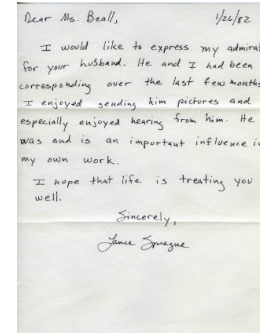 Dear Ms. Beall, 1/26/82
I would like to express my admirat
for your husband. He and I had been
corresponding over the last few months
I enjoyed sending him pictures and
especially enjoyed hearing from him. He
was and is an important influence in
my own work.
I hope that life is treating you
well.
Sincerely,
Lance Sprague